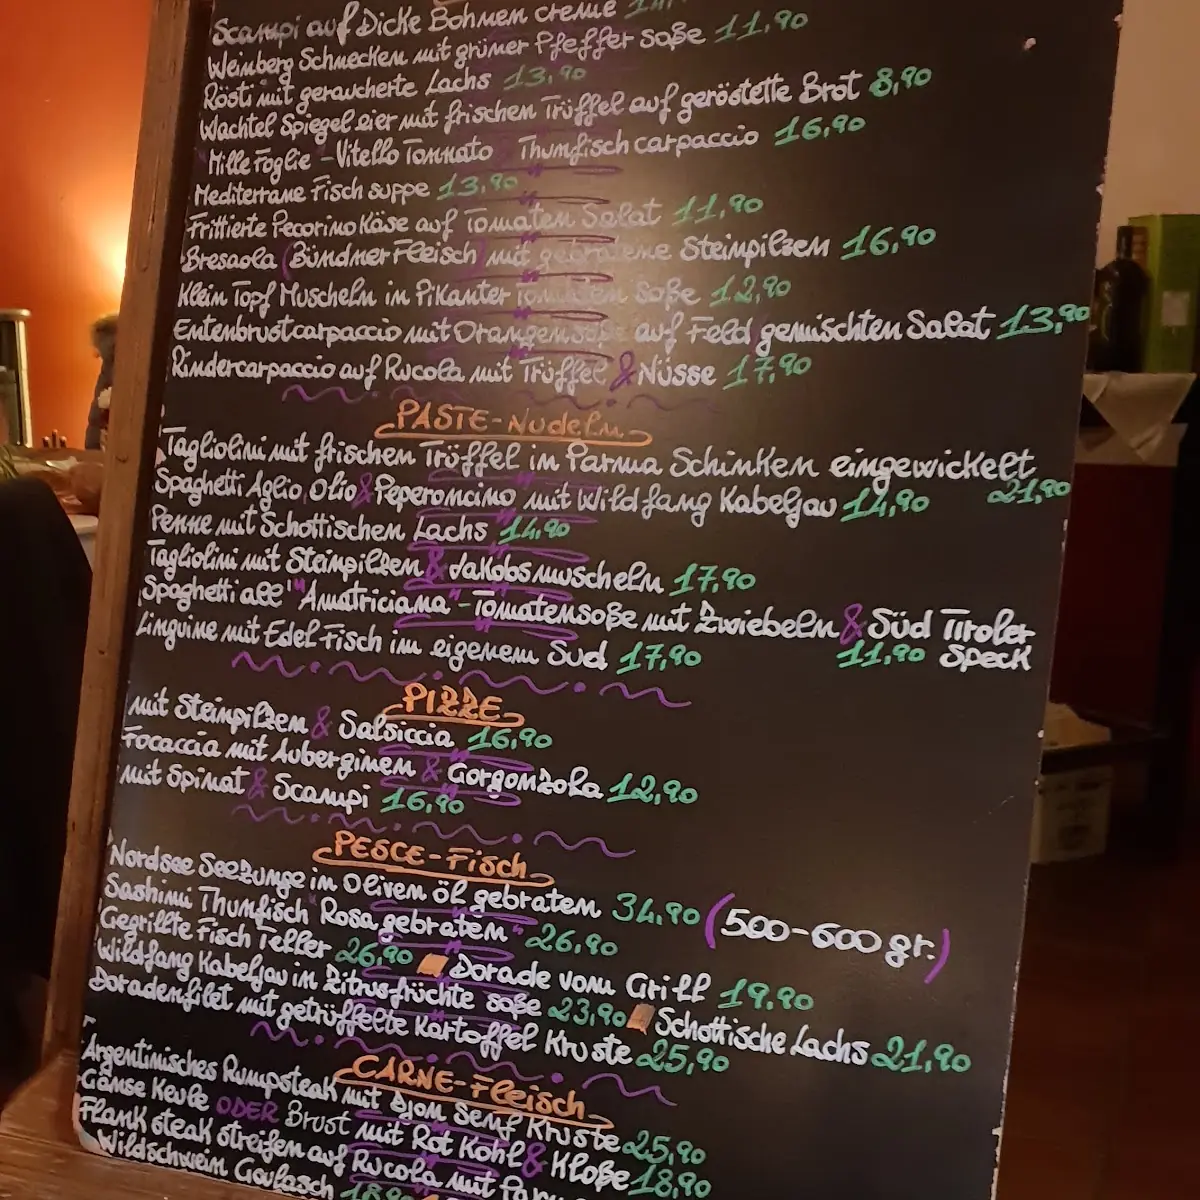 Scampi auf Dicke Bohnen creme
Weinberg Schnecken mit grüner Pfeffer soße 11,90
Rösti mit geraucherte Lachs 13,90
Wachtel Spiegel eier mit frischen Trüffel auf geröstette Brot 8,90
"Mille Foglie"-Vitello Tonnato Thunfisch carpaccio 16,90
Mediterrane Fisch suppe 13,90
Frittierte Pecorino Käse auf Tomaten Salat 11,90
Bresaola (Bündner Fleisch) mit gebratene Steinpilzen 16,90
Klein Topf Muscheln in Pikanter Tomaten Soße 12,90
Entenbrustcarpaccio mit Orangensoße auf Feld gemischten Salat 13,90
Rindercarpaccio auf Rucola mit Trüffel & Nüsse 17,90
PASTE-Nudeln
Tagliolini mit frischen Trüffel in Parma Schinken eingewickelt
21,90
Spaghetti Aglio, Olio & Peperoncino mit Wildfang Kabeljau 14,90
Penne mit Schottischen Lachs 14,90
Tagliolini mit Steinpilzen & Jakobsmuscheln 17,90
Spaghetti all' "Amatriciana"-Tomatensoße mit Zwiebeln & Süd Tiroler
11,90 Speck
Linguine mit Edel Fisch im eigenem Sud 17,90
PIZZE
mit Steinpilzen & Salsiccia 16,90
Focaccia mit Auberginen & Gorgonzola 12,90
mit Spinat & Scampi 16,90
PESCE-Fisch
Nordsee Seezunge in Oliven öl gebraten 34,90 (500-600 gr.)
Sashimi Thunfisch "Rosa gebraten" 26,90
Gegrillte Fisch Teller 26,90 Dorade vom Grill 19,90
Wildfang Kabeljau in Zitrusfrüchte soße 23,90 Schottische Lachs 21,90
Doradenfilet mit getrüffelte Kartoffel Kruste 25,90
CARNE-Fleisch
Argentinisches Rumpsteak mit Djon Senf Kruste 25,90
Gänse Keule ODER Brust mit Rot Kohl & Kloße 18,90
Flank steak streifen auf Rucola mit
Wildschwein Goulasch 18,90